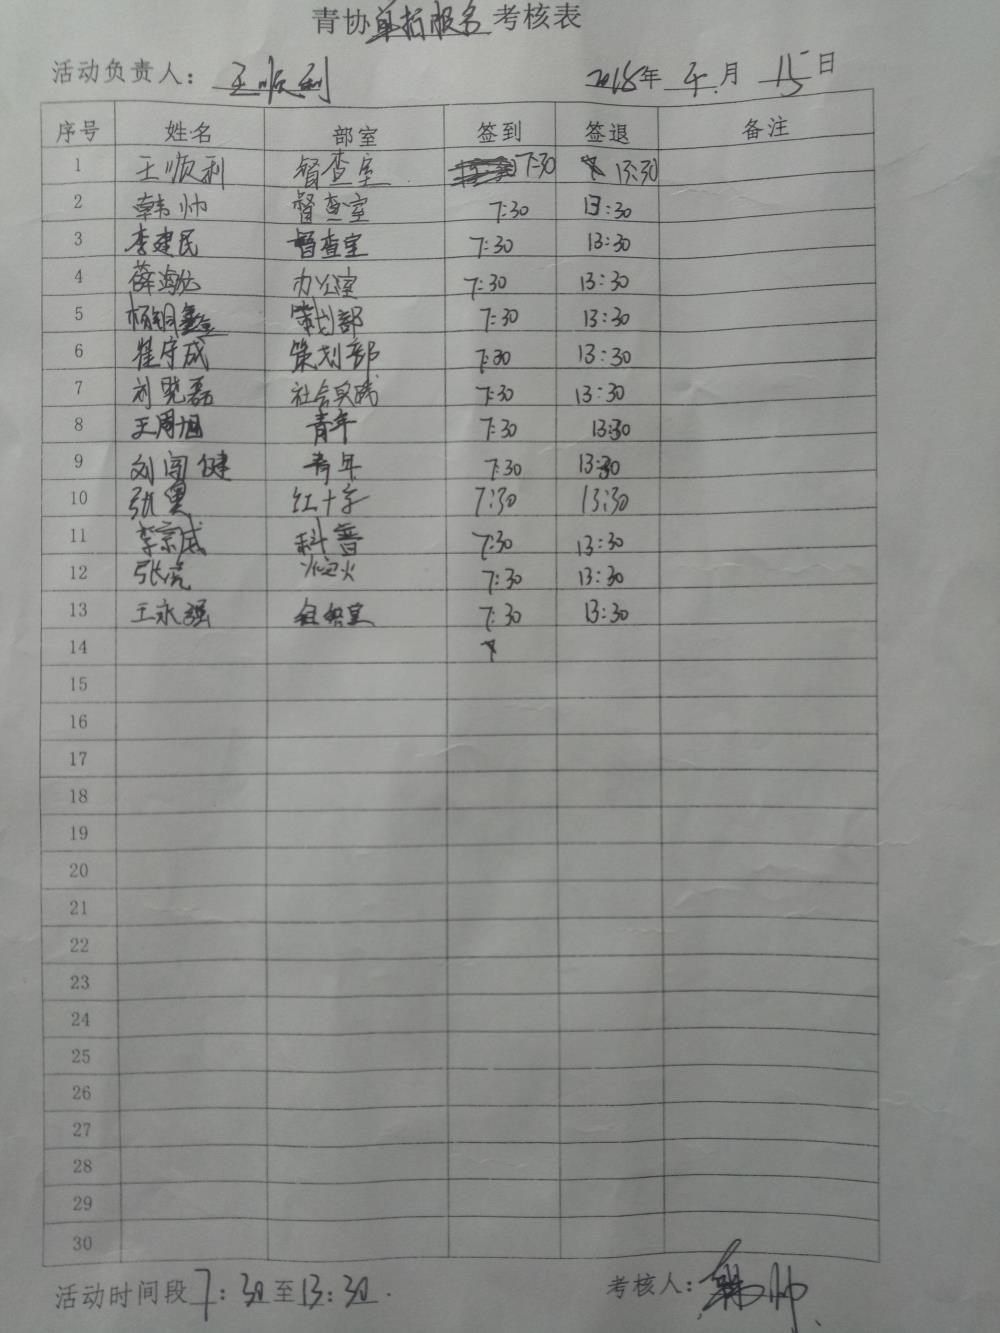 青协单招报名考核表
活动负责人：王顺利 2018年 4月 15日
序号 姓名 部室 签到 签退 备注
1 王顺利 督查室 7:30 13:30
2 韩帅 督查室 7:30 13:30
3 李建民 督查室 7:30 13:30
4 薛海 办公室 7:30 13:30
5 杨铜鑫 策划部 7:30 13:30
6 崔守成 策划部 7:30 13:30
7 刘晓磊 社会实践 7:30 13:30
8 王周旭 青年 7:30 13:30
9 刘闯健 青年 7:30 13:30
10 张勇 红十字 7:30 13:30
11 李宗威 科普 7:30 13:30
12 张亮 火 7:30 13:30
13 王永强 7:30 13:30
14
15
16
17
18
19
20
21
22
23
24
25
26
27
28
29
30
活动时间段 7:30至13:30. 考核人：韩帅